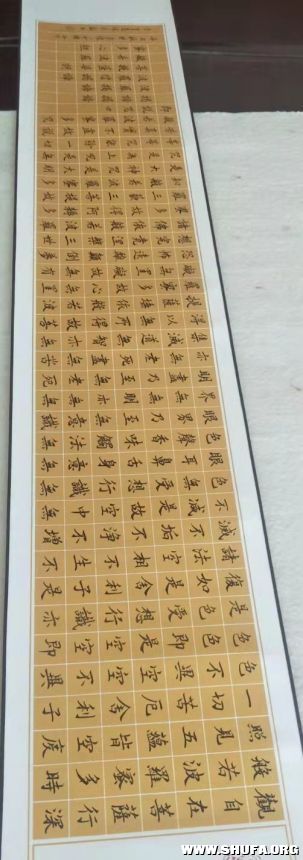 觀自在菩薩行深
般若波羅蜜多時
照見五蘊皆空度
一切苦厄舍利子
色不異空空不異
色色即是空空即
是色受想行識亦
復如是舍利子是
諸法空相不生不
滅不垢不淨不增
不減是故空中無
色無受想行識無
眼耳鼻舌身意無
色聲香味觸法無
眼界乃至無意識
界無無明亦無無
明盡乃至無老死
亦無老死盡無苦
集滅道無智亦無
得以無所得故菩
提薩埵依般若波
羅蜜多故心無罣
礙無罣礙故無有
恐怖遠離顛倒夢
想究竟涅槃三世
諸佛依般若波羅
蜜多故得阿耨多
羅三藐三菩提故
知般若波羅蜜多
是大神咒是大明
咒是無上咒是無
等等咒能除一切
WWW.SHUFA.ORG